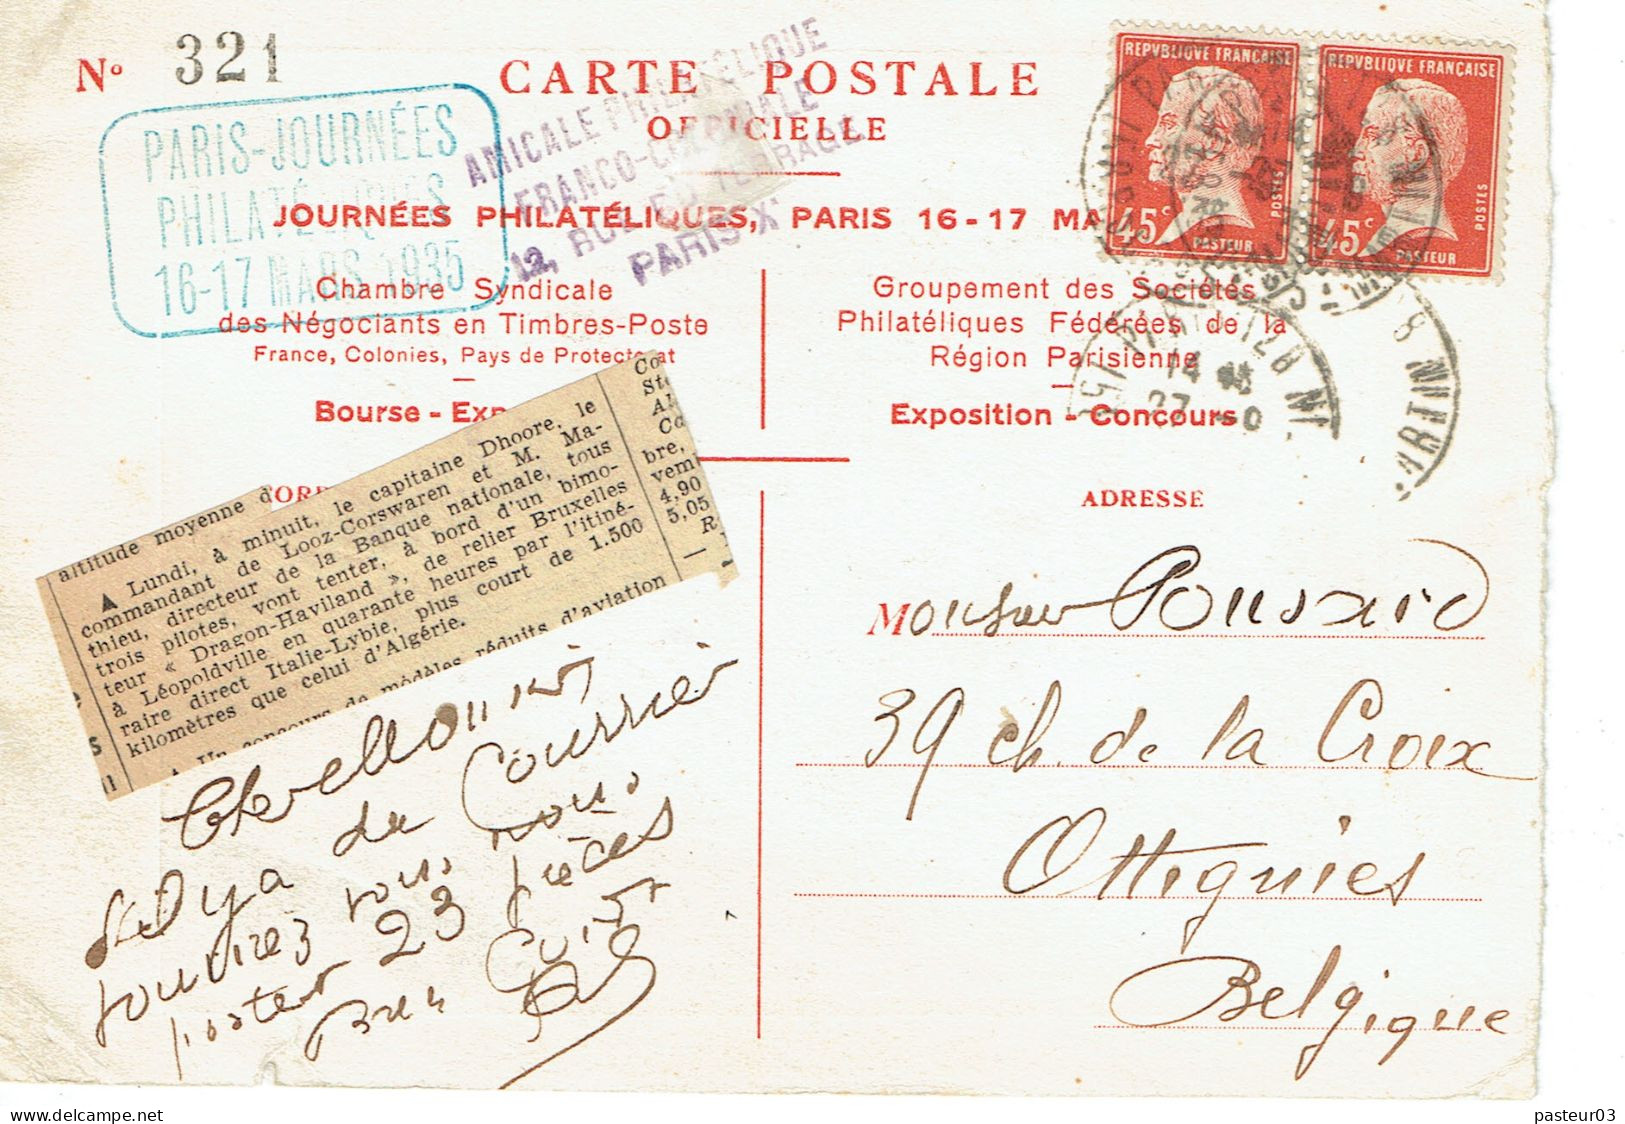 N° 321
CARTE POSTALE
OFFICIELLE
PARIS-JOURNÉES
PHILATÉLIQUES
16-17 MARS 1935
AMICALE PHILATÉLIQUE
FRANCO-COLONIALE
12, RUE DU TERRAGE
PARIS-X
REPVBLIQUE FRANÇAISE
45c
POSTES
PASTEUR
REPVBLIQUE FRANÇAISE
45c
POSTES
PASTEUR
JOURNÉES PHILATÉLIQUES, PARIS 16-17 MA
Chambre Syndicale
des Négociants en Timbres-Poste
France, Colonies, Pays de Protectorat
Bourse - Exp
Groupement des Sociétés
Philatéliques Fédérées de la
Région Parisienne
Exposition - Concours
ADRESSE
altitude moyenne d
▲ Lundi, à minuit, le capitaine Dhoore, le
commandant de Looz-Corswaren et M. Ma-
thieu, directeur de la Banque nationale, tous
trois pilotes, vont tenter, à bord d'un bimo-
teur « Dragon-Haviland », de relier Bruxelles
à Léopoldville en quarante heures par l'itiné-
raire direct Italie-Lybie, plus court de 1.500
kilomètres que celui d'Algérie.
▲ Un concours de modèles réduits d'aviation
Co
bre,
vem
4,90
5,05
R
Monsieur Ponsard
39 ch. de la Croix
Ottignies
Belgique
Cher Monsieur
S'il y a du Courrier
pourriez vous nous
poster 23 pièces
Bien
pasteur03